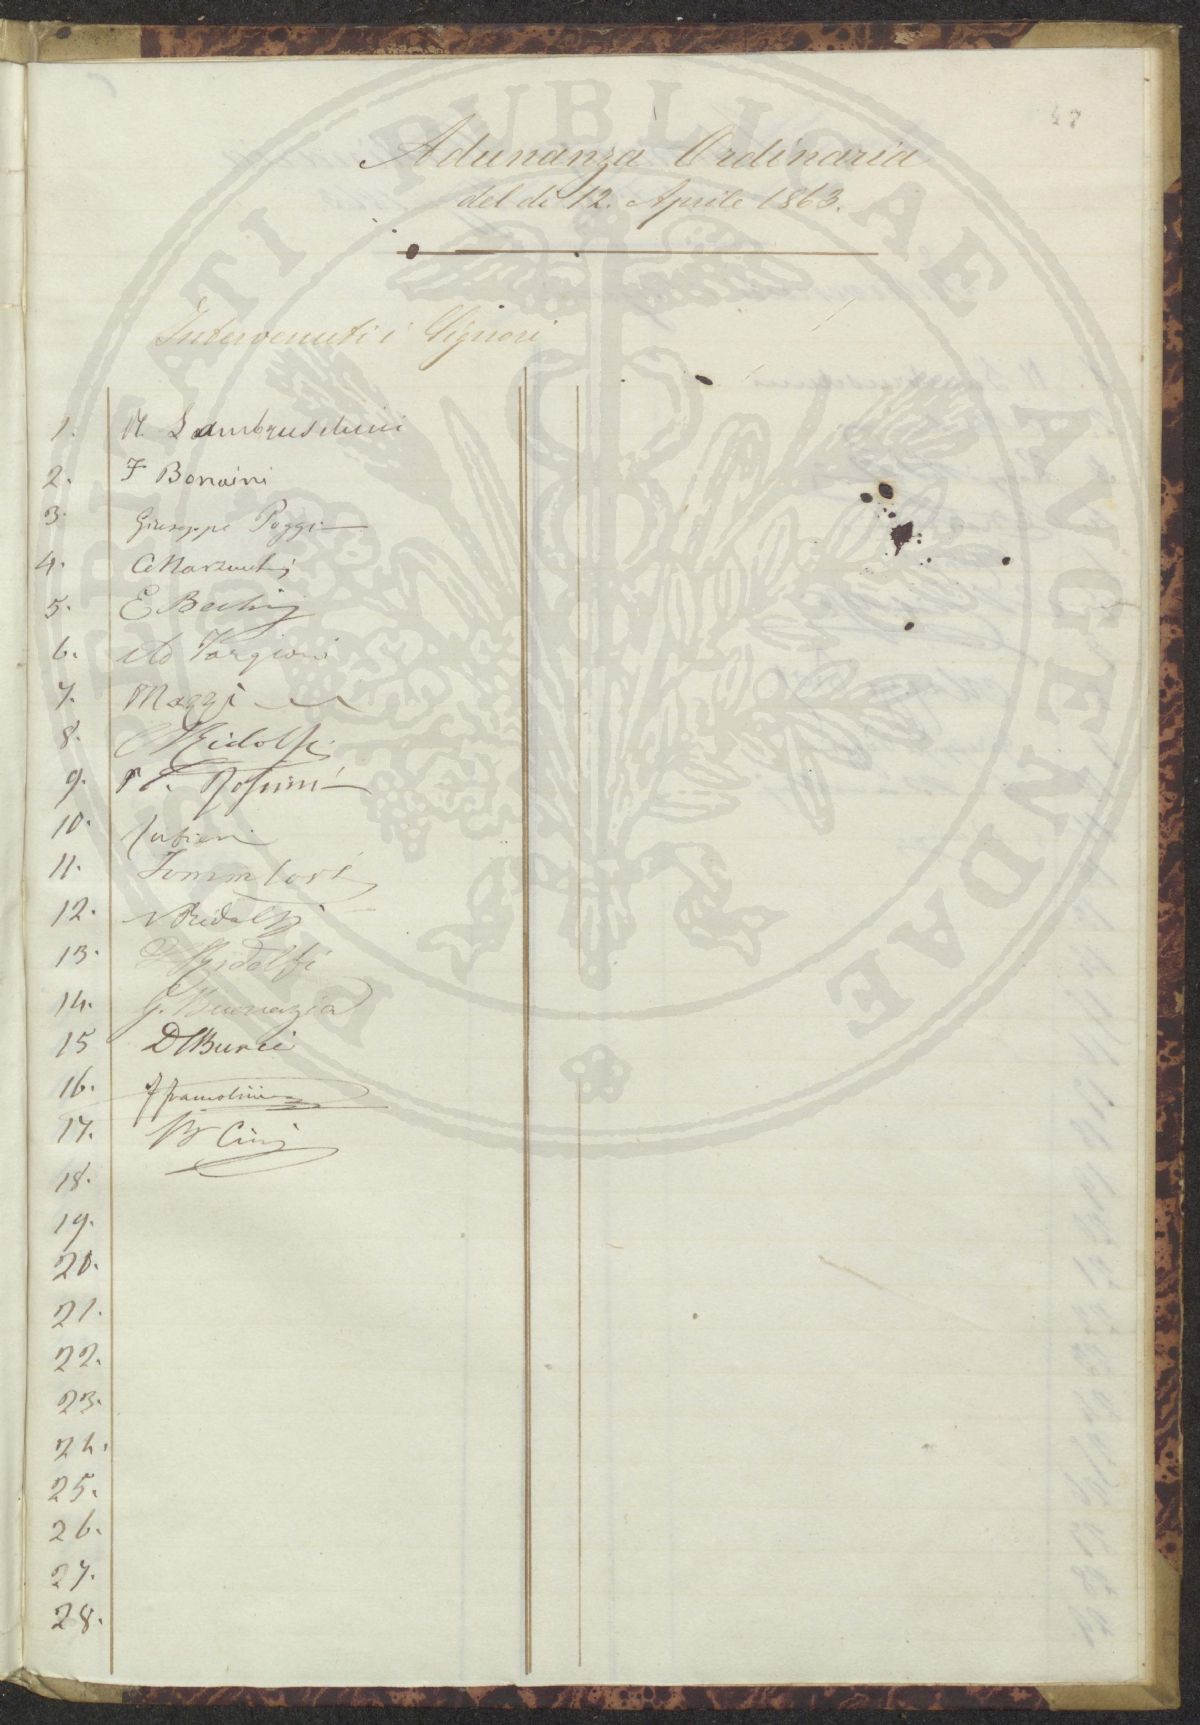 47
Adunanza Ordinaria
del dì 12. Aprile 1863.
Intervenuti i Signori
1. R. Lambruschini
2. F Bonaini
3. Giuseppe Poggi
4. C Marzucchi
5. E Bechi
6. Ad Targioni
7. Mazzi
8. C Ridolfi
9. P. E.
10.
11. Tommi
12. N Ridolfi
13. L Ridolfi
14. G. Buonazia
15 D Burci
16.
17. B Cini
18.
19.
20.
21.
22.
23.
24.
25.
26.
27.
28.
PROSPERITATI PUBLICAE AVGENDAE